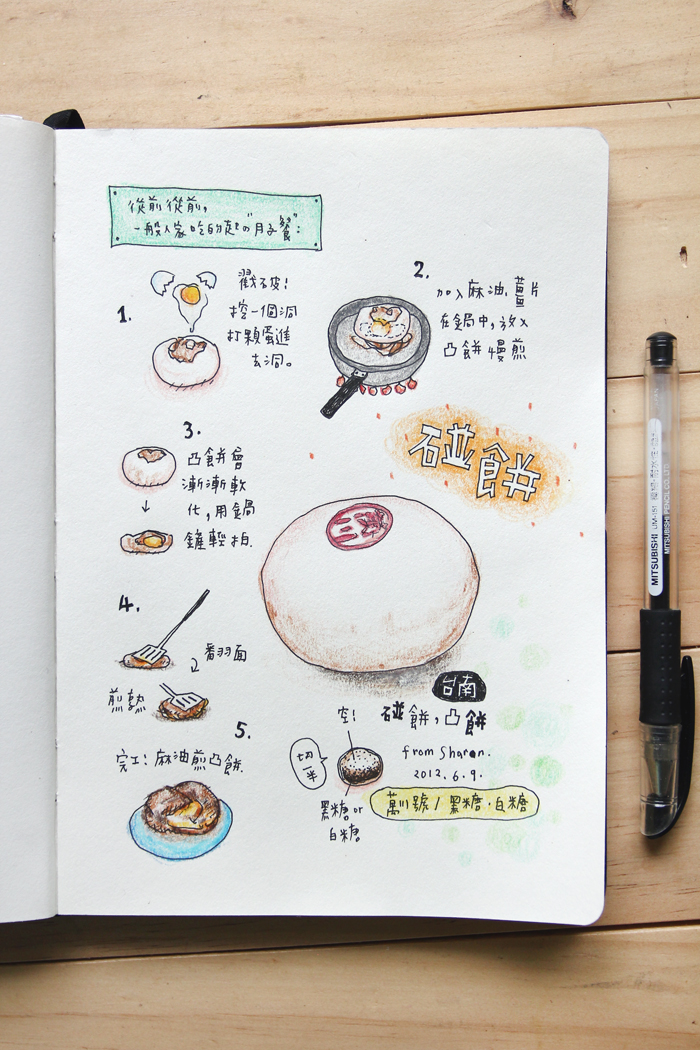 從前從前,
一般人家吃的起の"月子餐":
1.
戳破皮!
挖一個洞
打顆蛋進
去洞。
2.
加入麻油、薑片
在鍋中,放入
凸餅慢煎
3.
凸餅會
漸漸軟
化,用鍋
鏟輕拍.
4.
翻面
煎熟
5.
完工!麻油煎凸餅.
碰餅
台南
碰餅,凸餅
from Sharon.
2012.6.9.
萬川號/黑糖.白糖
空!
切一半
黑糖or
白糖
MITSUBISHI UM-151
MITSUBISHI PENCIL CO.,LTD.